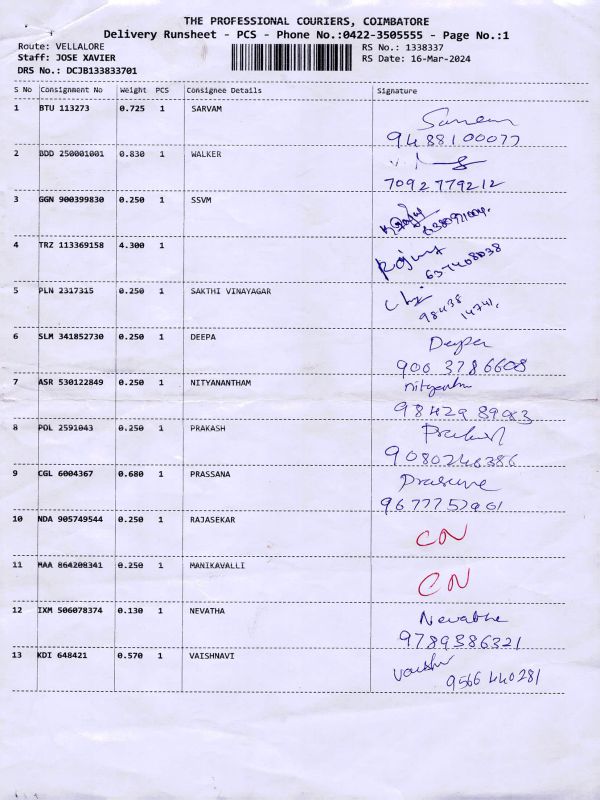 THE PROFESSIONAL COURIERS, COIMBATORE
Delivery Runsheet - PCS - Phone No.:0422-3505555 - Page No.:1
Route: VELLALORE RS No.: 1338337
Staff: JOSE XAVIER RS Date: 16-Mar-2024
DRS No.: DCJB133833701
S No Consignment No Weight PCS Consignee Details Signature
1 BTU 113273 0.725 1 SARVAM
9488100077
2 BDD 250001001 0.830 1 WALKER
7092779212
3 GGN 900399830 0.250 1 SSVM
4 TRZ 113369158 4.300 1
637408038
5 PLN 2317315 0.250 1 SAKTHI VINAYAGAR
98438
14741.
6 SLM 341852730 0.250 1 DEEPA Deepa
9003786608
7 ASR 530122849 0.250 1 NITYANANTHAM
8 POL 2591043 0.250 1 PRAKASH Prakash
9080246386
9 CGL 6004367 0.680 1 PRASSANA
10 NDA 905749544 0.250 1 RAJASEKAR CN
11 MAA 864208341 0.250 1 MANIKAVALLI CN
12 IXM 506078374 0.130 1 NEVATHA Nevatha
9789386321
13 KDI 648421 0.570 1 VAISHNAVI Vaishu
9566440281